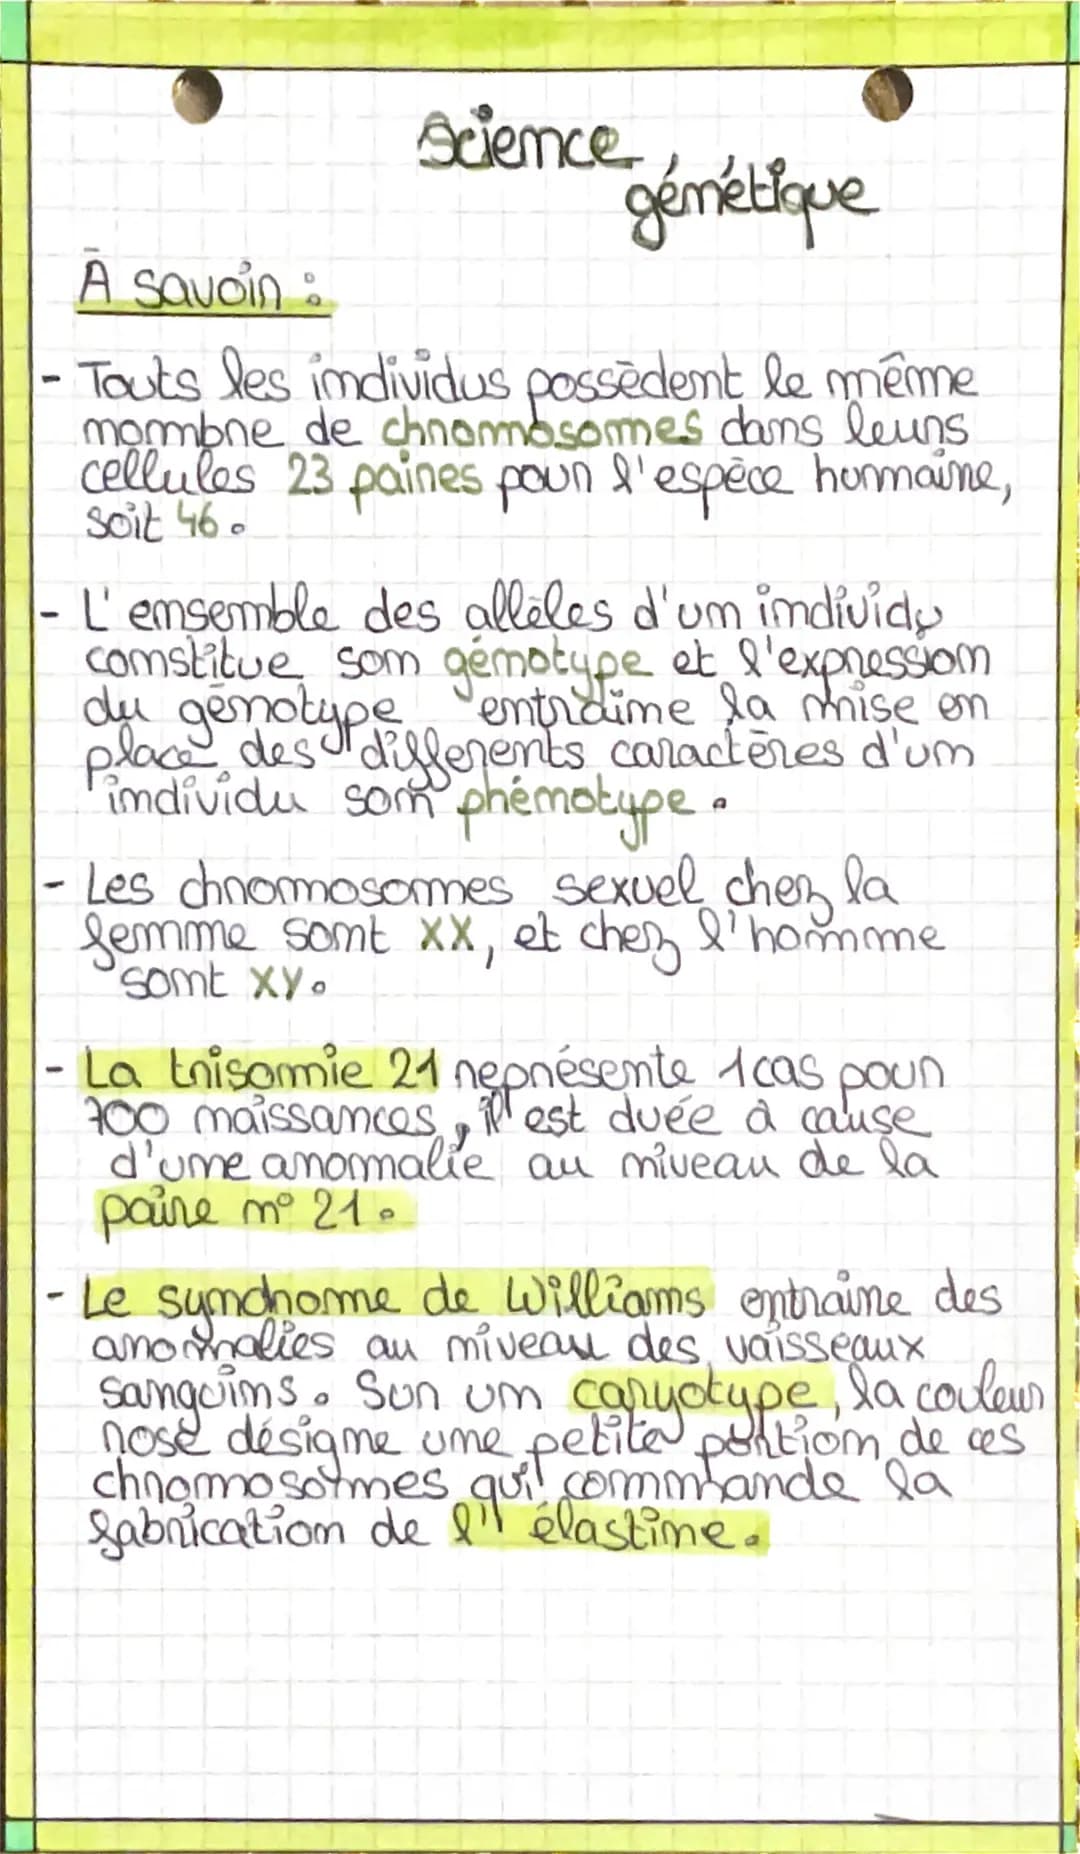 Science
génétique
À savoir :
- Touts les individus possèdent le même
nombre de chromosomes dans leurs
cellules 23 paires pour l'espèce humaine,
soit 46.
- L'ensemble des allèles d'un individu
constitue son génotype et l'expression
du génotype entraîne la mise en
place des differents caractères d'un
individu son phénotype.
- Les chromosomes sexuel chez la
femme sont XX, et chez l'homme
sont XY.
- La trisomie 21 représente 1 cas pour
700 naissances, il est duée à cause
d'une anomalie au niveau de la
paire n° 21.
- Le syndrome de Williams entraine des
anomalies au niveau des vaisseaux
sanguins. Sur un caryotype, la couleur
rose désigne une petite portion de ces
chromosomes qui commande la
fabrication de l'élastine.